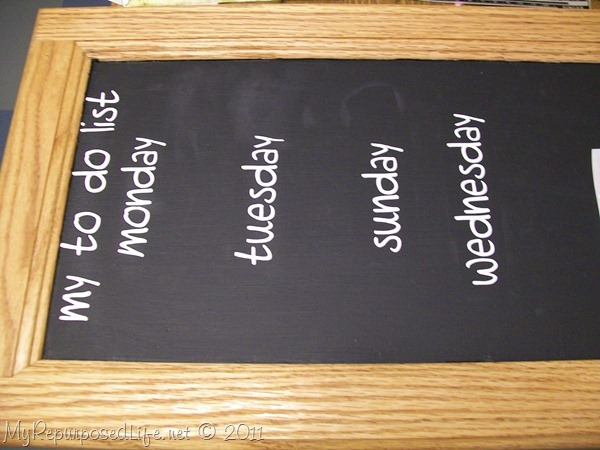 my to do list
monday
tuesday
sunday
wednesday
MyRepurposedLife.net © 2011